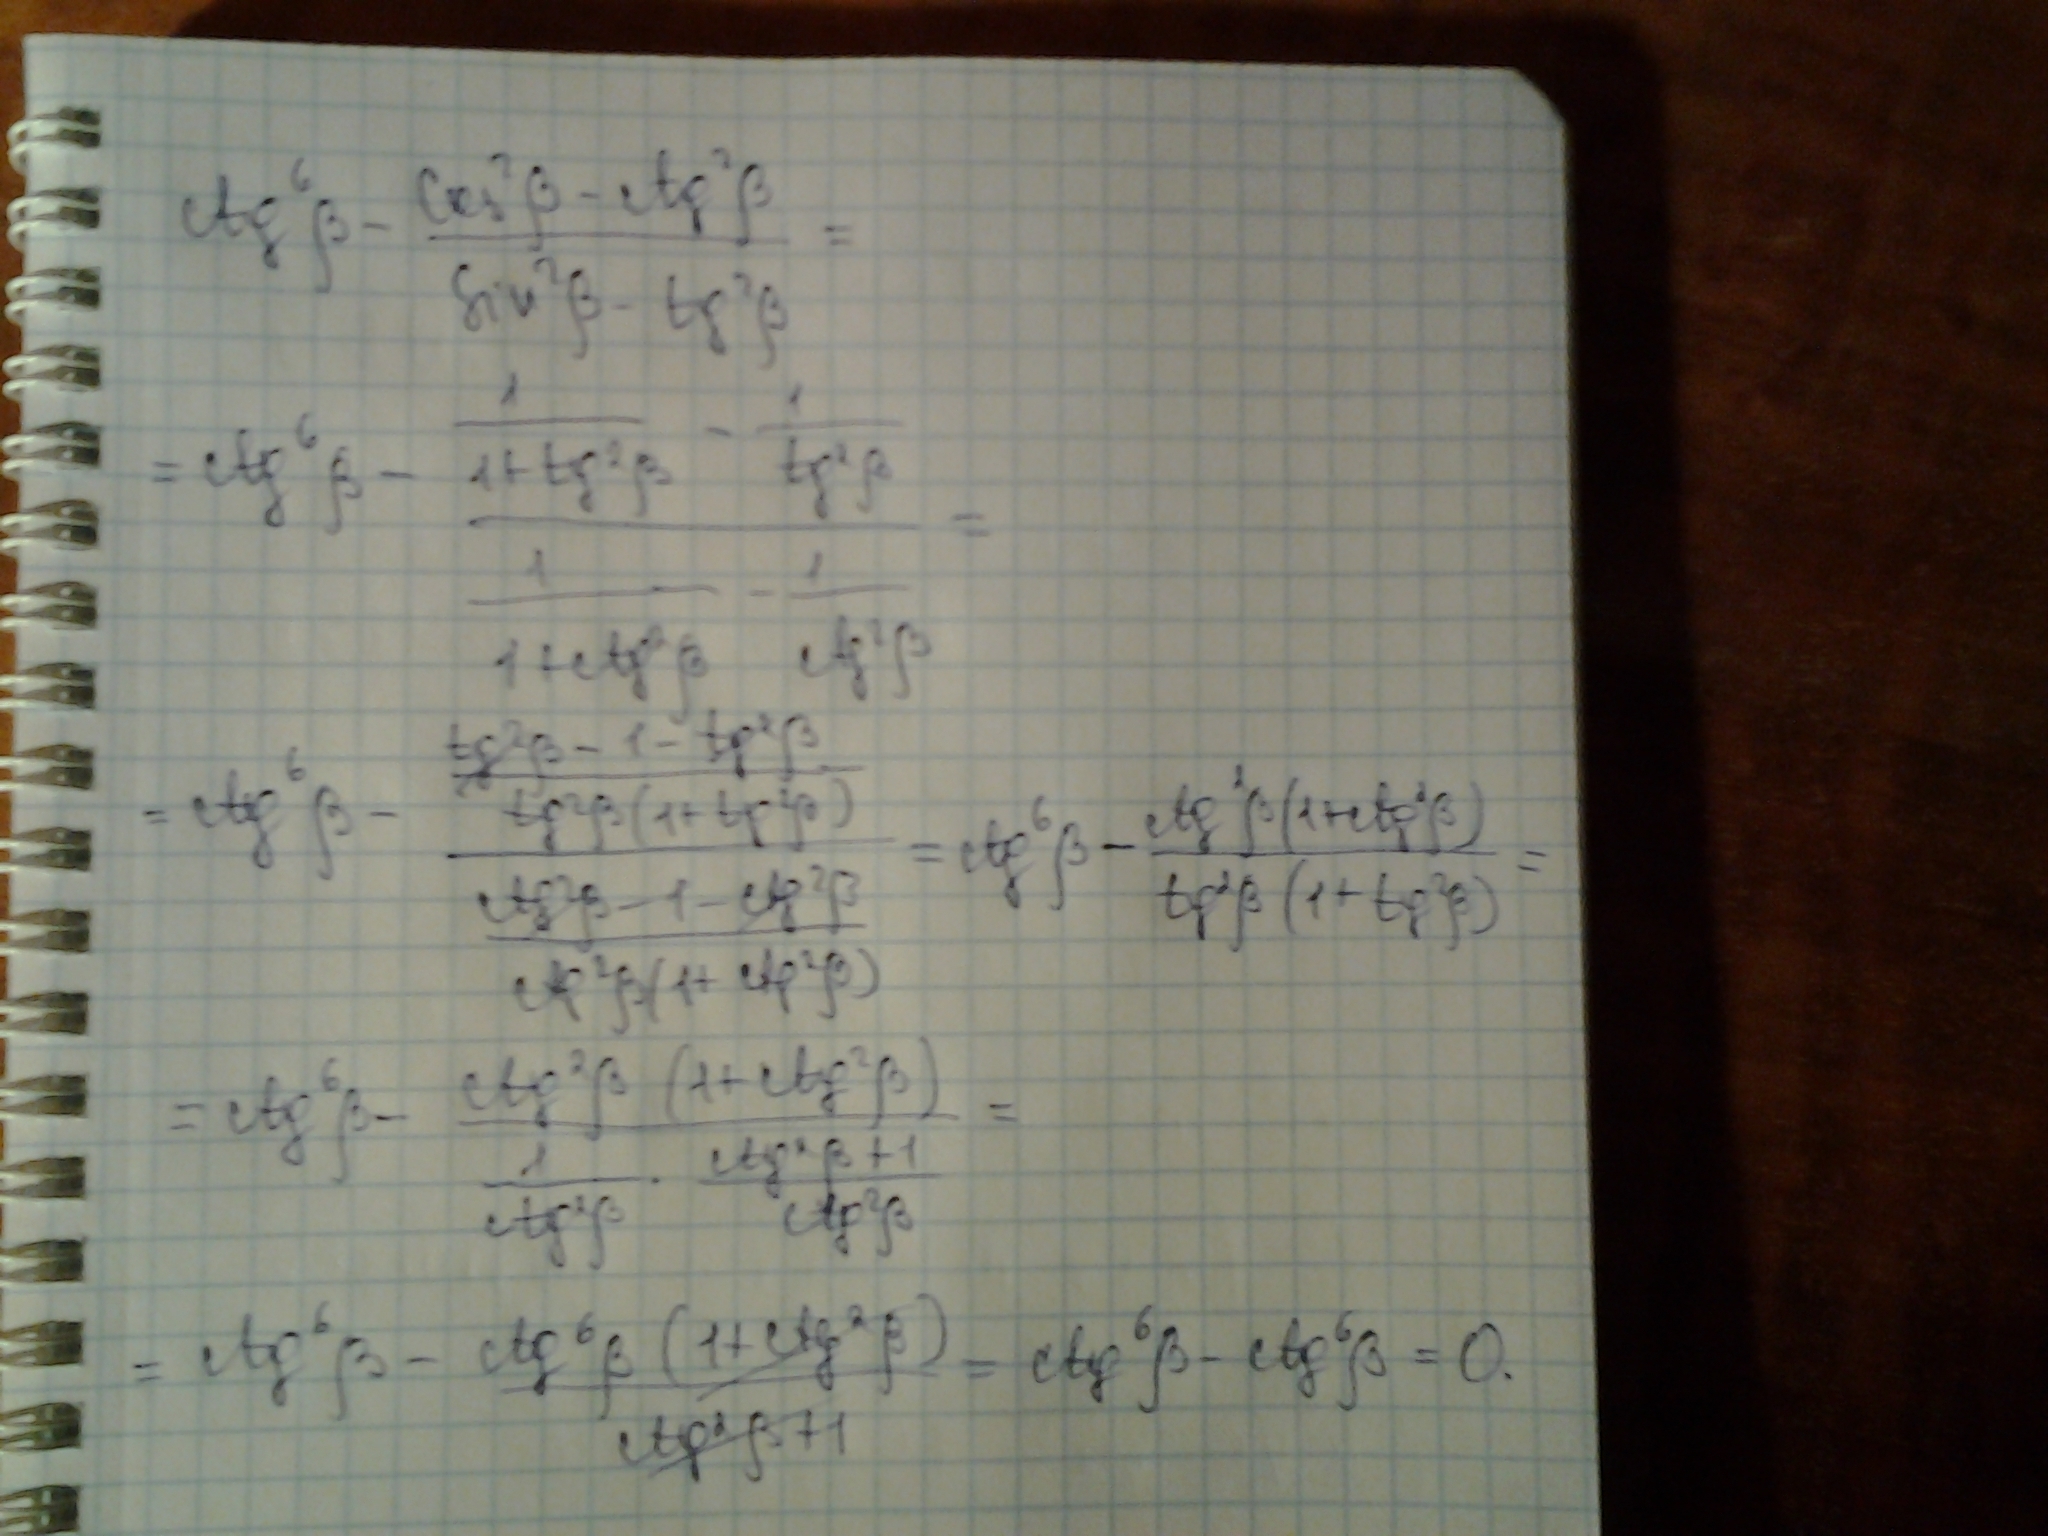 ctg⁶β − (cos²β − ctg²β)/(sin²β − tg²β) =
= ctg⁶β − (1/(1+tg²β) − 1/tg²β)/(1/(1+ctg²β) − 1/ctg²β) =
= ctg⁶β − ((tg²β − 1 − tg²β)/(tg²β(1+tg²β)))/((ctg²β − 1 − ctg²β)/(ctg²β(1+ctg²β))) = ctg⁶β − (ctg²β(1+ctg²β))/(tg²β(1+tg²β)) =
= ctg⁶β − (ctg²β (1+ctg²β))/(1/ctg²β · (ctg²β+1)/ctg²β) =
= ctg⁶β − (ctg⁶β (1+ctg²β))/(ctg²β+1) = ctg⁶β − ctg⁶β = 0.